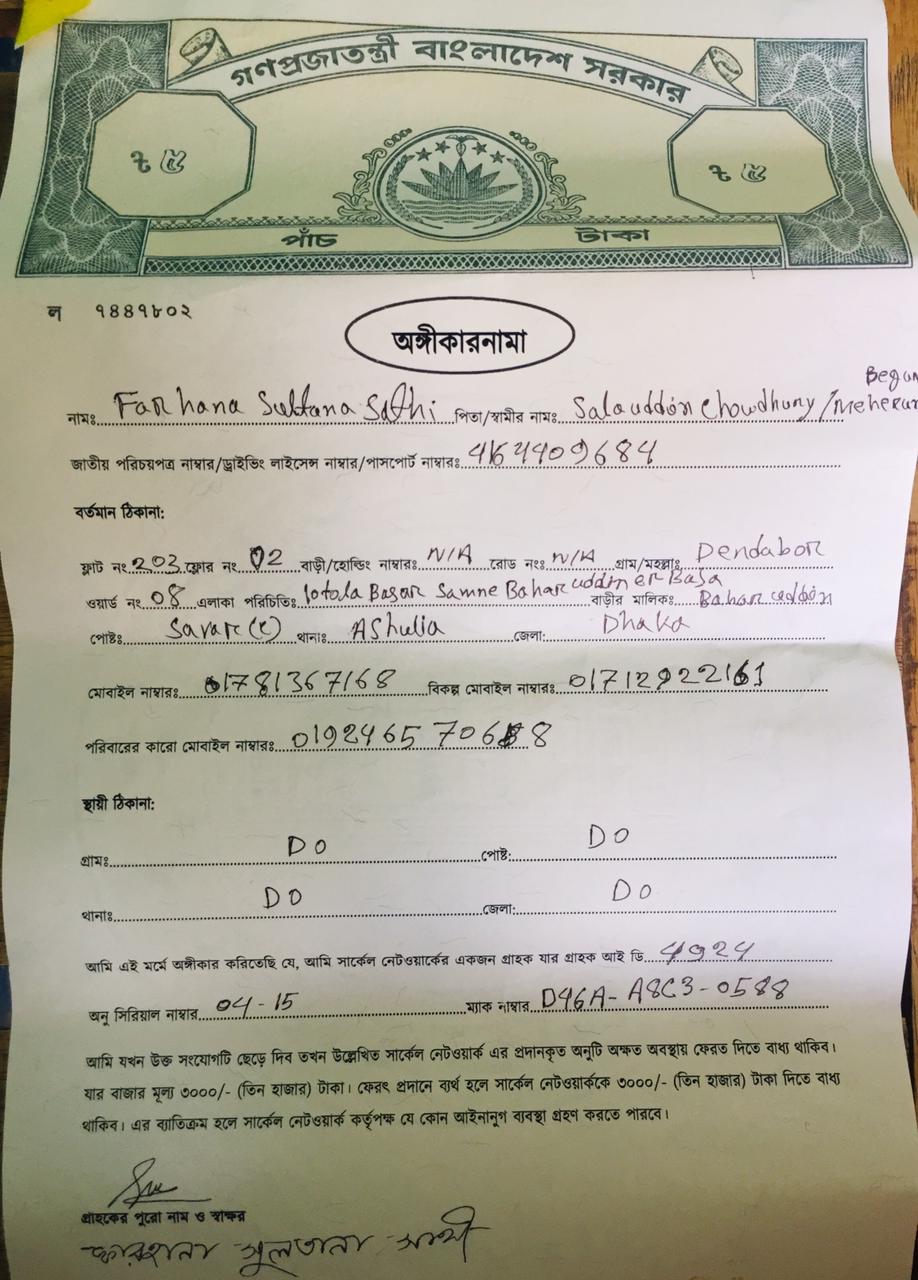 গণপ্রজাতন্ত্রী বাংলাদেশ সরকার
৳ ৫ ৳ ৫
পাঁচ টাকা
ল ৭৪৪৭৮০২
অঙ্গীকারনামা
Begum
নামঃ Farhana Sultana Sathi পিতা/স্বামীর নাম: Salauddin Chowdhury/Meherun
জাতীয় পরিচয়পত্র নাম্বার/ড্রাইভিং লাইসেন্স নাম্বার/পাসপোর্ট নাম্বারঃ 4164409684
বর্তমান ঠিকানা:
ফ্লাট নং 203 ফ্লোর নং 02 বাড়ী/হোল্ডিং নাম্বারঃ N/A রোড নংঃ N/A গ্রাম/মহল্লাঃ Dendabor
ওয়ার্ড নং 08 এলাকা পরিচিতিঃ 10tala Bazar Samne Bahar uddin er Basa বাড়ীর মালিকঃ Bahar uddin
পোষ্টঃ Savar (c) থানাঃ AShulia জেলা: Dhaka
মোবাইল নাম্বারঃ 01781367168 বিকল্প মোবাইল নাম্বারঃ 01712922161
পরিবারের কারো মোবাইল নাম্বারঃ 01924657068
স্থায়ী ঠিকানা:
গ্রামঃ DO পোষ্ট: DO
থানাঃ DO জেলা: DO
আমি এই মর্মে অঙ্গীকার করিতেছি যে, আমি সার্কেল নেটওয়ার্কের একজন গ্রাহক যার গ্রাহক আই ডি 4924
অনু সিরিয়াল নাম্বার 04-15 ম্যাক নাম্বার D46A-A8C3-0588
আমি যখন উক্ত সংযোগটি ছেড়ে দিব তখন উল্লেখিত সার্কেল নেটওয়ার্ক এর প্রদানকৃত অনুটি অক্ষত অবস্থায় ফেরত দিতে বাধ্য থাকিব।
যার বাজার মূল্য ৩০০০/- (তিন হাজার) টাকা। ফেরৎ প্রদানে ব্যর্থ হলে সার্কেল নেটওয়ার্ককে ৩০০০/- (তিন হাজার) টাকা দিতে বাধ্য
থাকিব। এর ব্যাতিক্রম হলে সার্কেল নেটওয়ার্ক কর্তৃপক্ষ যে কোন আইনানুগ ব্যবস্থা গ্রহণ করতে পারবে।
গ্রাহকের পুরো নাম ও স্বাক্ষর
ফারহানা সুলতানা সাথী